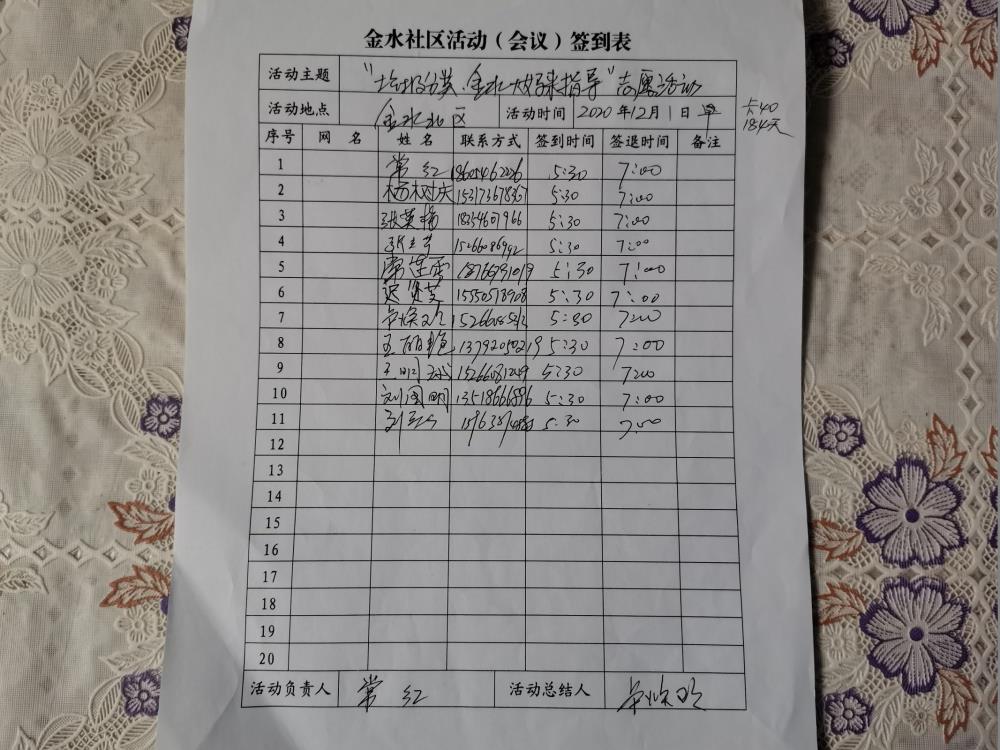 金水社区活动（会议）签到表
活动主题 "垃圾分类·金水大妈来指导"志愿活动
活动地点 金水社区 活动时间 2020年12月1日
184天
序号 网名 姓名 联系方式 签到时间 签退时间 备注
1 常红 5:30 7:00
2 杨树庆 5:30 7:00
3 张英梅 18254607966 5:30 7:00
4 15266086992 5:30 7:00
5 常连雪 5:30 7:00
6 迟贤芝 15550578908 5:30 7:00
7 5:30 7:00
8 王丽艳 13792050219 5:30 7:00
9 王明 15266081249 5:30 7:00
10 刘国明 13518666896 5:30 7:00
11 5:30 7:00
12
13
14
15
16
17
18
19
20
活动负责人 常红 活动总结人